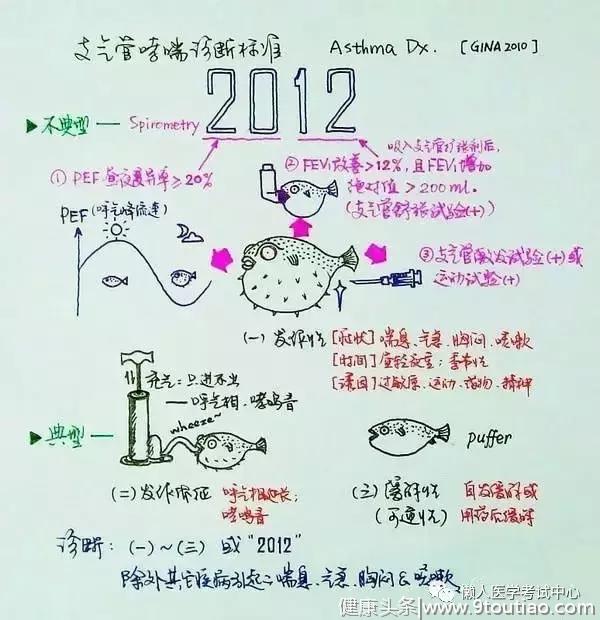 支气管哮喘诊断标准 Asthma Dx. [GINA 2010]
2012
▶不典型 — Spirometry
吸入支气管扩张剂后,
① PEF 昼夜变异率≥20%
② FEV₁改善>12%, 且FEV₁增加
绝对值 > 200 ml.
(支气管舒张试验(+))
PEF (呼气峰流速)
③ 支气管激发试验(+)或
运动试验(+)
(一) 发作性 [症状] 喘息、气急、胸闷、咳嗽
[时间] 昼轻夜重; 季节性
[诱因] 过敏原、运动、药物、精神
充气: 只进不出
— 呼气相、哮鸣音
wheeze~
▶典型 —
puffer
(二) 发作体征 呼气相延长;
哮鸣音
(三) 缓解性 自发缓解或
(可逆性) 用药后缓解
诊断: (一)~(三) 或 "2012"
除外其它疾病引起之喘息、气急、胸闷 & 咳嗽
懒人医学考试中心
健康头条/www.9toutiao.com